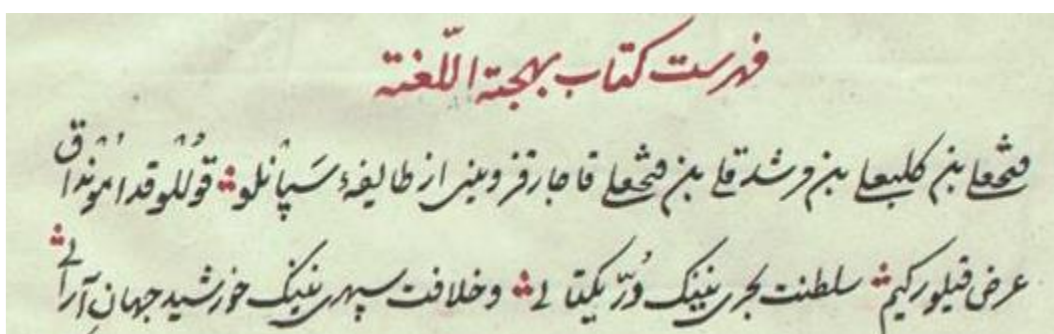 فهرست کتاب بهجة اللّغة
فتحعلی بن کلبعلی بن مرشدقلی بن فتحعلی قاجار قزوینی از طایفهٔ سَپانلو قوللوقدا مونداق
عرض قیلور کیم سلطنت بحری نینک دُرّ یکتا لی و خلافت سپهری نینک خورشید جهان آرالی